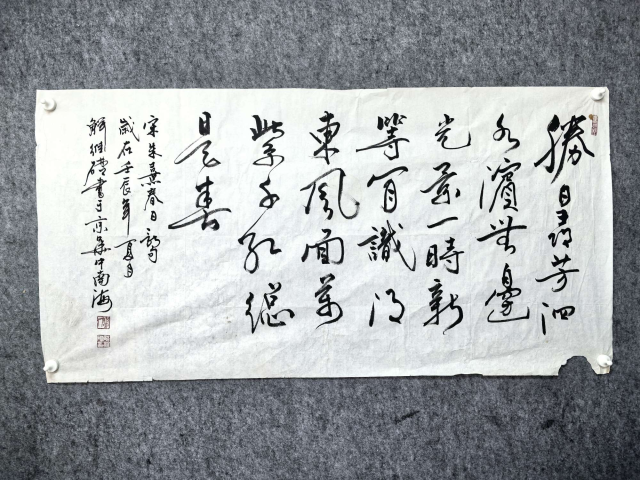 勝日尋芳泗
水濱無邊
光景一時新
等閒識得
東風面萬
紫千紅總
是春
宋朱熹春日詩句
歲在壬辰年夏月
維書于京華中南海